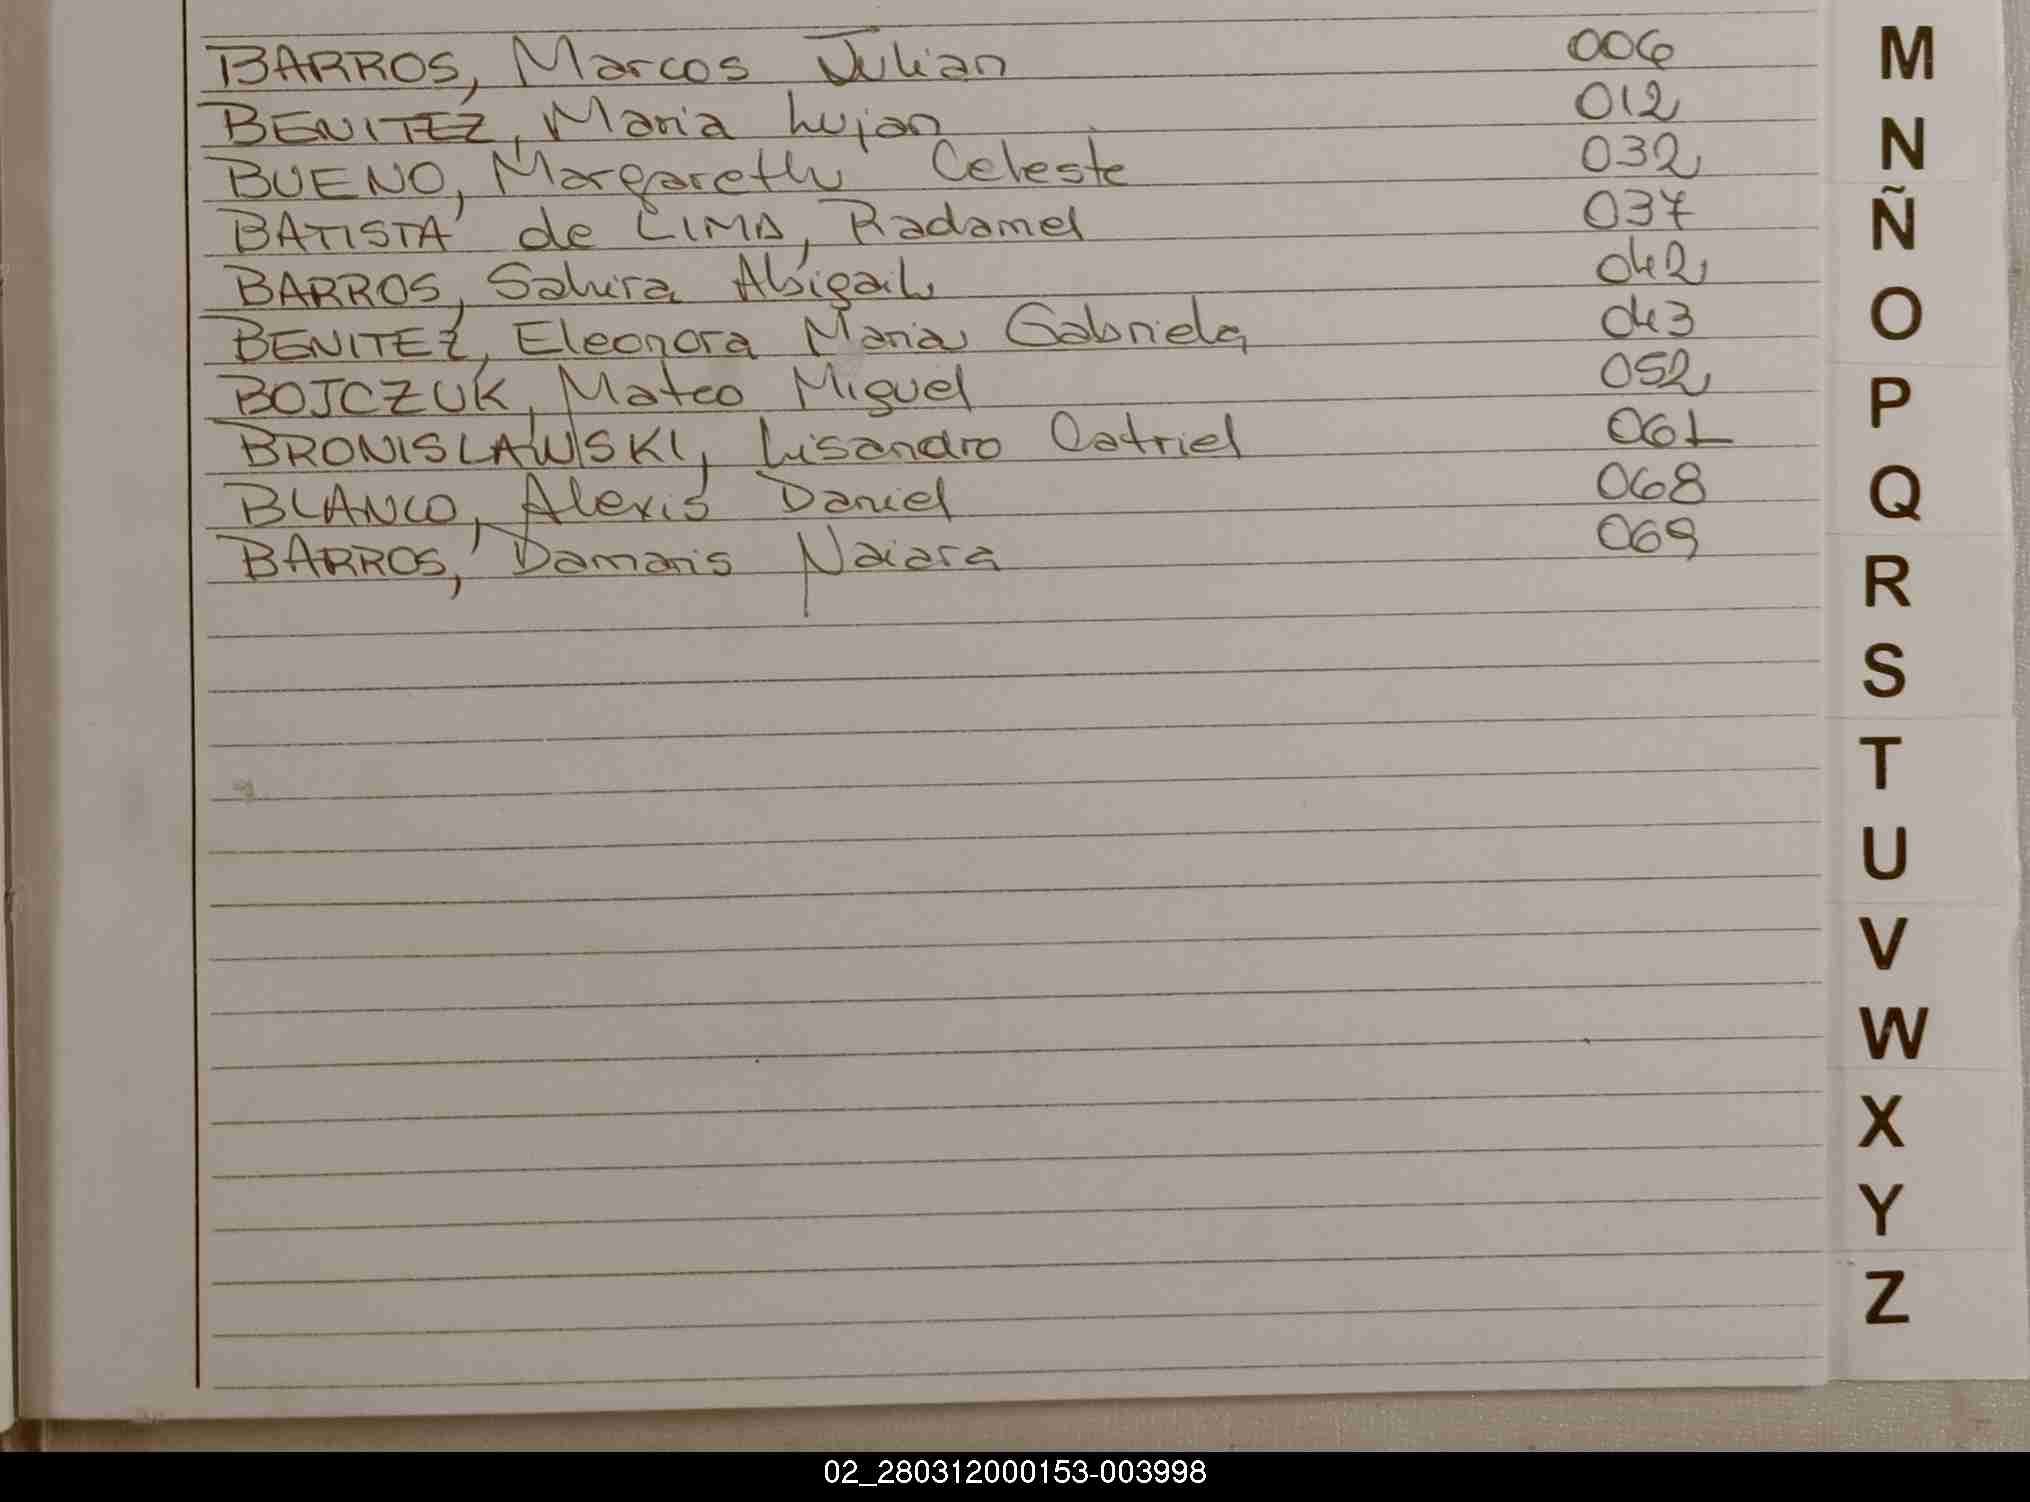 BARROS, Marcos Julian 006
BENITEZ, Maria Lujan 012
BUENO, Margareth Celeste 032
BATISTA de LIMA, Radamel 037
BARROS, Sahira Abigail 042
BENITEZ, Eleonora Maria Gabriela 043
BOJCZUK, Mateo Miguel 052
BRONISLAWSKI, Lisandro Catriel 061
BLANCO, Alexis Daniel 068
BARROS, Damaris Naiara 069
M
N
Ñ
O
P
Q
R
S
T
U
V
W
X
Y
Z
02_280312000153-003998